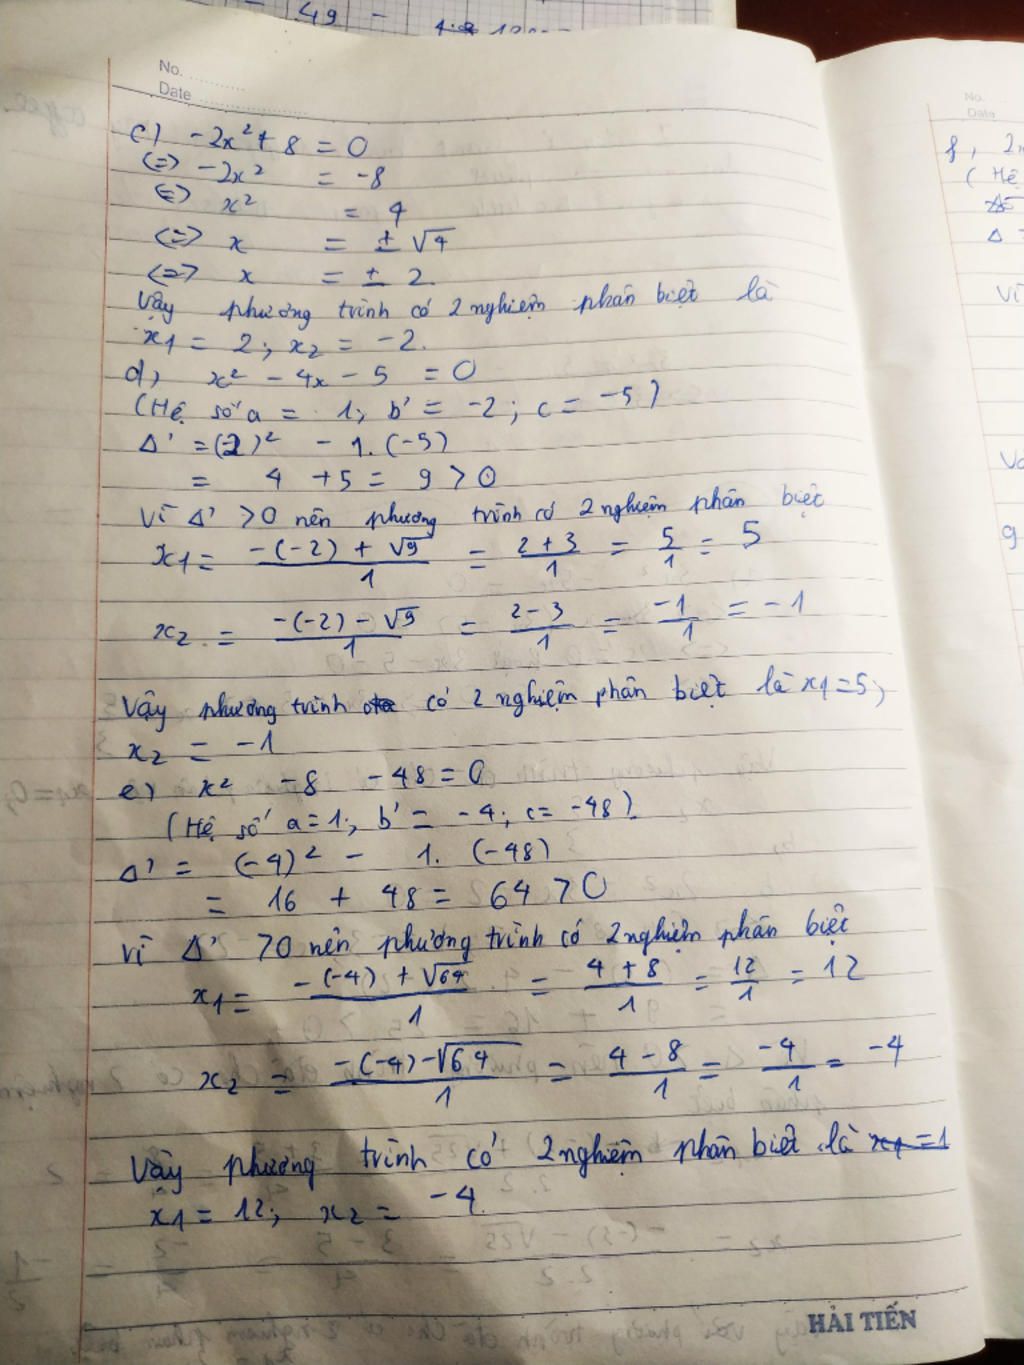 49
No.
Date
c) -2x² + 8 = 0
(=) -2x² = -8
(=) x² = 4
(=) x = ± √4
(=) x = ± 2.
Vậy phương trình có 2 nghiệm phân biệt là
x1 = 2; x2 = -2.
d) x² - 4x - 5 = 0
(Hệ số a = 1; b' = -2; c = -5)
Δ' = (-2)² - 1.(-5)
= 4 + 5 = 9 > 0
Vì Δ' > 0 nên phương trình có 2 nghiệm phân biệt
x1 = -(-2) + √9 / 1 = 2 + 3 / 1 = 5 / 1 = 5
x2 = -(-2) - √9 / 1 = 2 - 3 / 1 = -1 / 1 = -1
Vậy phương trình có 2 nghiệm phân biệt là x1 = 5;
x2 = -1
e) x² - 8 - 48 = 0
(Hệ số a = 1; b' = -4; c = -48)
Δ' = (-4)² - 1. (-48)
= 16 + 48 = 64 > 0
Vì Δ' > 0 nên phương trình có 2 nghiệm phân biệt
x1 = -(-4) + √64 / 1 = 4 + 8 / 1 = 12 / 1 = 12
x2 = -(-4) - √64 / 1 = 4 - 8 / 1 = -4 / 1 = -4
Vậy phương trình có 2 nghiệm phân biệt là x1 = 1
x1 = 12; x2 = -4.
HẢI TIẾN
No.
Date
f,
(Hệ
Δ
Vì
g